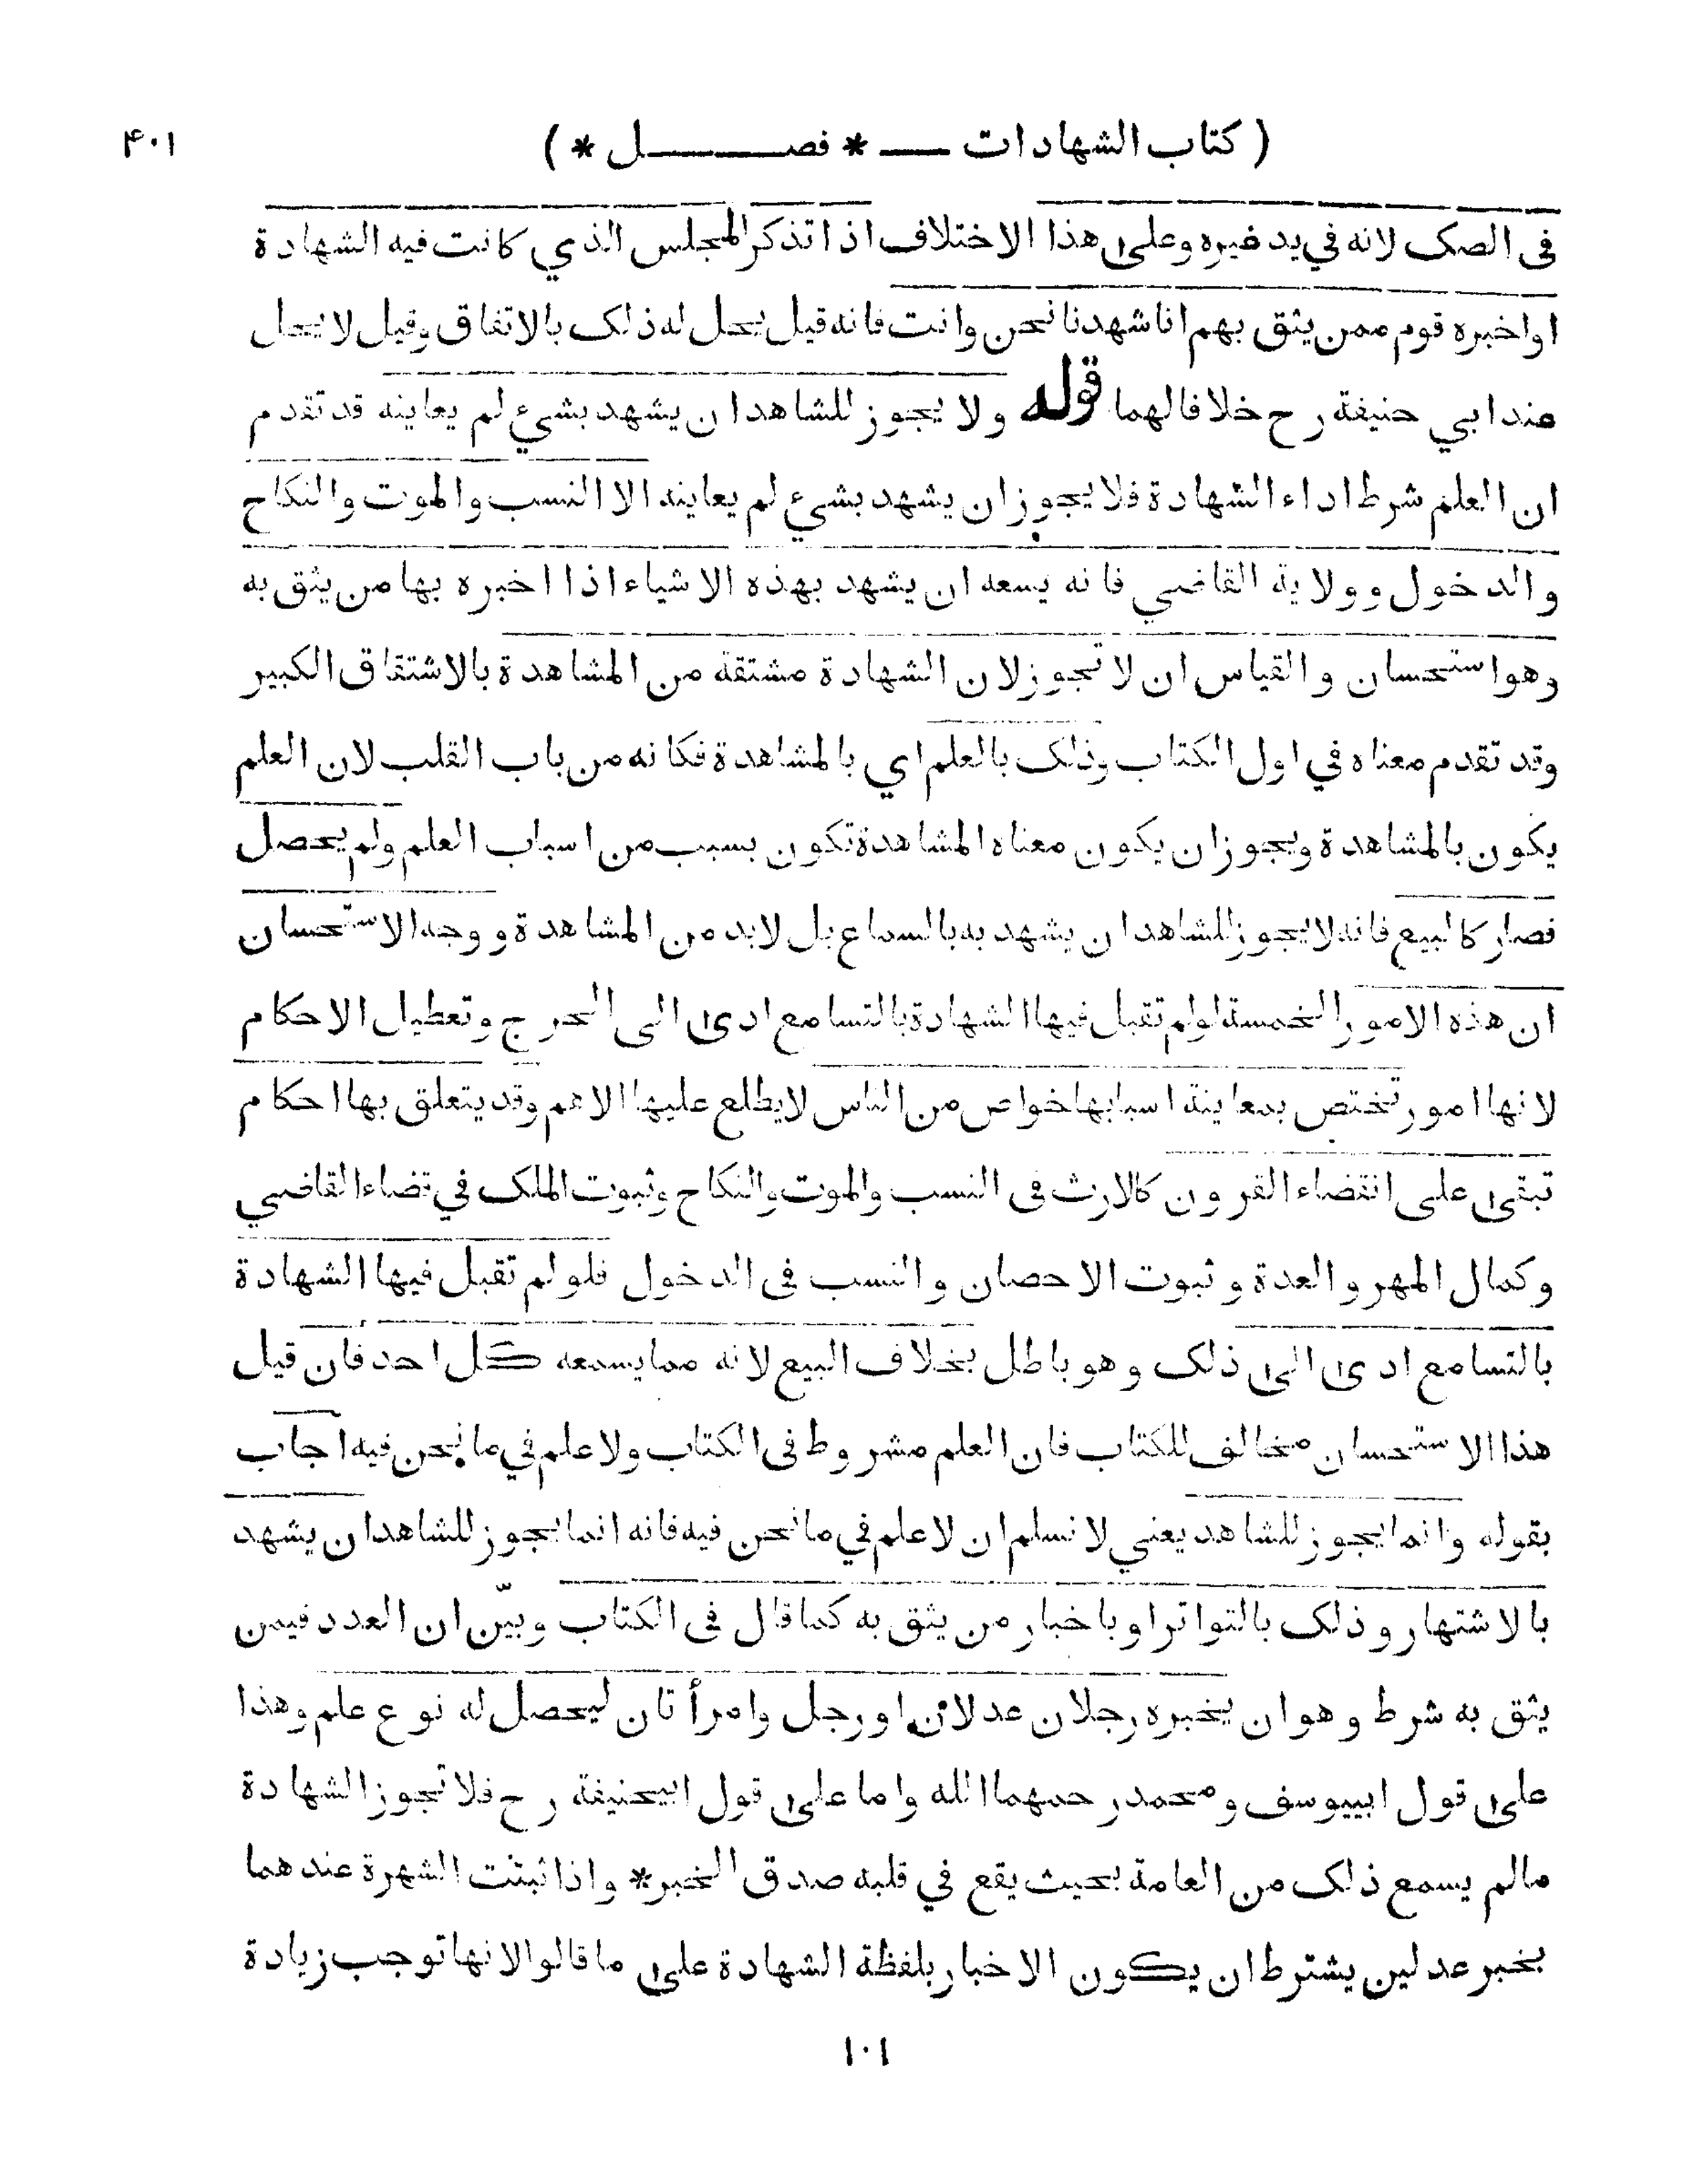 ( كتاب الشهادات ــ * فصــــل * ) ۴۰۱
فى الصك لانه في يد غيره وعلى هذا الاختلاف اذا تذكر المجلس الذي كانت فيه الشهادة
او اخبره قوم ممن يثق بهم انا شهدنا نحن وانت فانه قيل يحل له ذلك بالاتفاق وقيل لا يحل
عند ابي حنيفة رح خلافا لهما قوله ولا يجوز للشاهد ان يشهد بشيء لم يعاينه قد تقدم
ان العلم شرط اداء الشهادة فلا يجوز ان يشهد بشيء لم يعاينه الا النسب والموت والنكاح
والدخول وولاية القاضي فانه يسعه ان يشهد بهذه الاشياء اذا اخبره بها من يثق به
وهو استحسان والقياس ان لا تجوز لان الشهادة مشتقة من المشاهدة بالاشتقاق الكبير
وقد تقدم معناه في اول الكتاب وذلك بالعلم اي بالمشاهدة فكانه من باب القلب لان العلم
يكون بالمشاهدة ويجوز ان يكون معناه المشاهدة تكون بسبب من اسباب العلم ولم يحصل
فصار كالبيع فانه لا يجوز للشاهد ان يشهد به بالسماع بل لا بد من المشاهدة ووجه الاستحسان
ان هذه الامور الخمسة لو لم تقبل فيها الشهادة بالتسامع ادى الى الحرج وتعطيل الاحكام
لانها امور تختص بمعاينة اسبابها خواص من الناس لا يطلع عليها الا هم وقد يتعلق بها احكام
تبقى على انقضاء القرون كالارث فى النسب والموت والنكاح وثبوت الملك في قضاء القاضي
وكمال المهر والعدة وثبوت الاحصان والنسب فى الدخول فلو لم تقبل فيها الشهادة
بالتسامع ادى الى ذلك وهو باطل بخلاف البيع لانه مما يسمعه كل احد فان قيل
هذا الاستحسان مخالف للكتاب فان العلم مشروط فى الكتاب ولا علم في ما نحن فيه اجاب
بقوله وانما يجوز للشاهد يعني لا نسلم ان لا علم في ما نحن فيه فانه انما يجوز للشاهد ان يشهد
بالاشتهار وذلك بالتواتر او باخبار من يثق به كما قال فى الكتاب وبيّن ان العدد فيمن
يثق به شرط وهو ان يخبره رجلان عدلان او رجل وامرأتان ليحصل له نوع علم وهذا
على قول ابييوسف ومحمد رحمهما الله واما على قول ابيحنيفة رح فلا تجوز الشهادة
ما لم يسمع ذلك من العامة بحيث يقع في قلبه صدق الخبر * واذا ثبتت الشهرة عندهما
بخبر عدلين يشترط ان يكون الاخبار بلفظة الشهادة على ما قالوا لانها توجب زيادة
۱۰۱